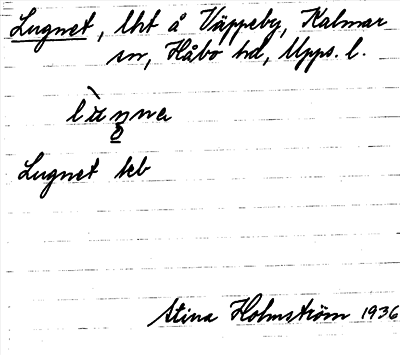 Lugnet, lht å Väppeby, Kalmar
sn, Håbo hd, Upps. l.
Lugnet teb
Stina Holmström 1936